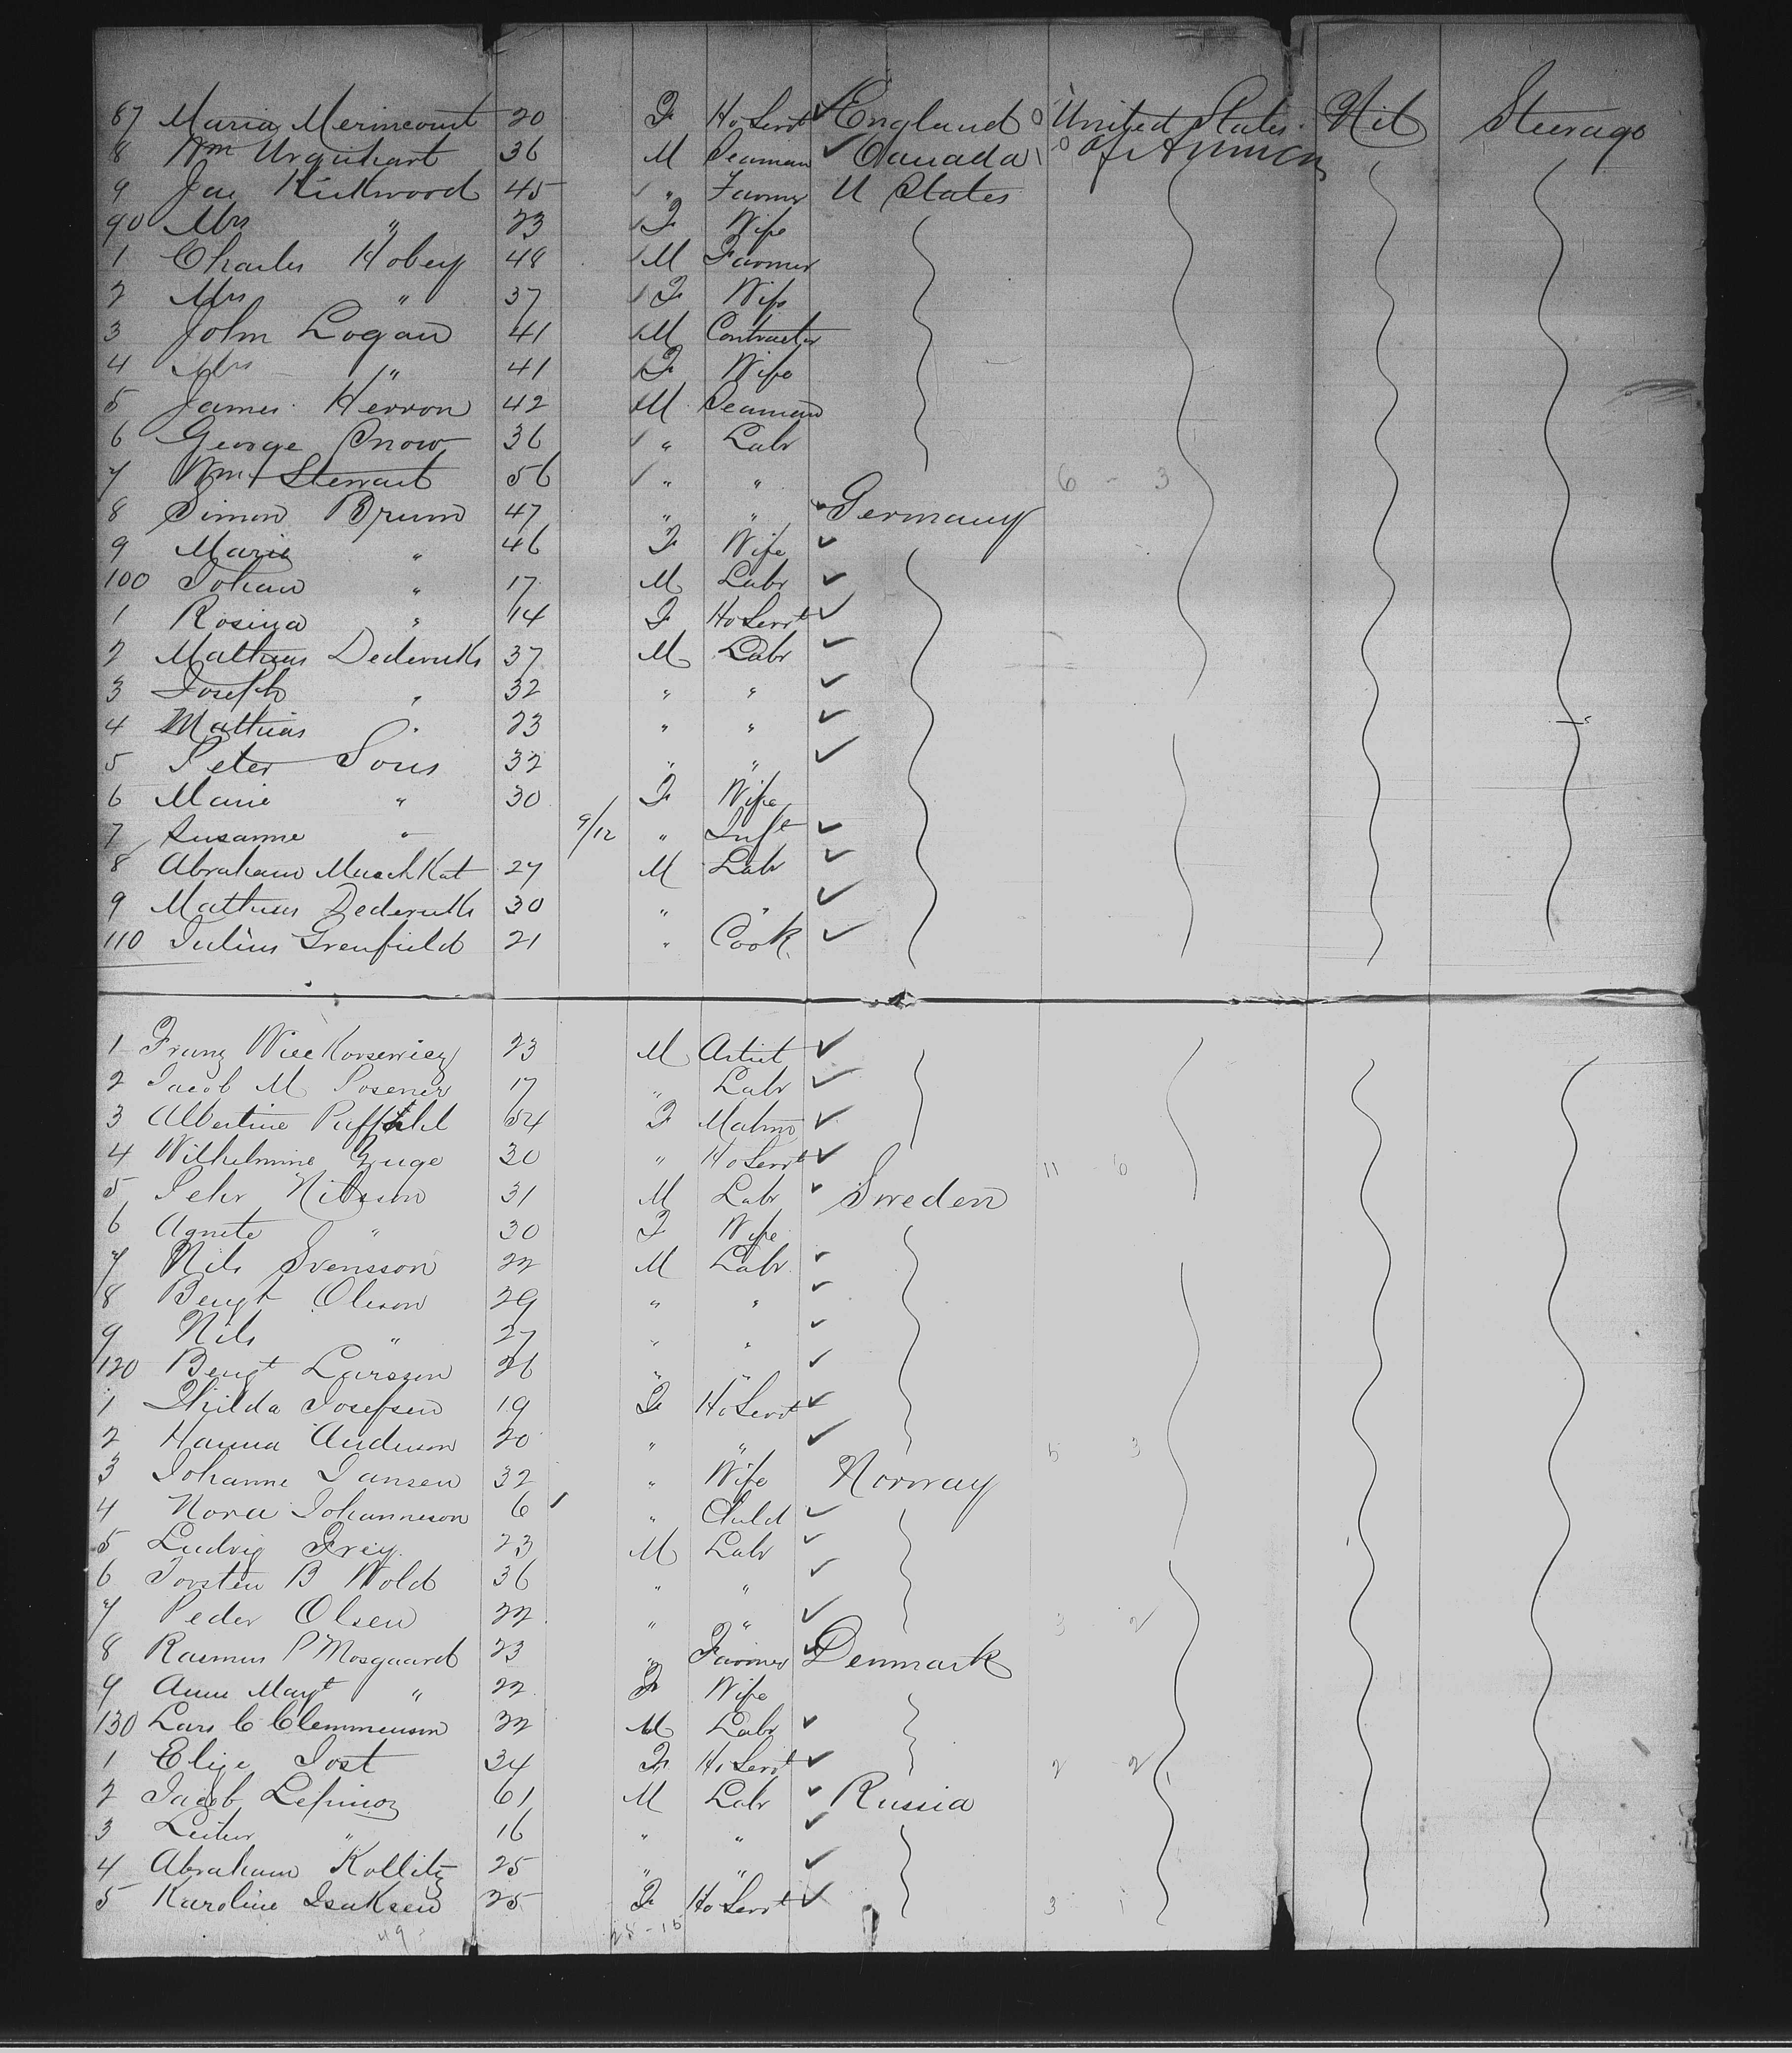 87 Maria Merincourt 20 F Ho Servt England 0 United States Nil Steerage
8 Wm Urquhart 36 M Seaman Canada 1 0 of America
9 Jas Kirkwood 45 " Farmer U States
90 Mrs " 23 F Wife
1 Charles Hobey 48 M Farmer
2 Mrs " 37 F Wife
3 John Logan 41 M Contractor
4 Mrs " 41 F Wife
5 James Herron 42 M Seaman
6 George Snow 36 " Labr
7 Wm Stewart 56 " " 6 - 3
8 Simon Brum 47 " " Germany
9 Marie " 46 F Wife
100 Johan " 17 M Labr
1 Rosina " 14 F Ho Servt
2 Mathias Dederichs 37 M Labr
3 Joseph " 32 " "
4 Mathias " 23 " "
5 Peter Sons 32 " "
6 Marie " 30 F Wife
7 Susanne " 9/12 " Inft
8 Abraham MuschKat 27 M Labr
9 Mathias Dederichs 30 " "
110 Julius Grenfield 21 " Cook
1 Franz 23 M Artist
2 Jacob M Posener 17 " Labr
3 Albertine 54 F Matron
4 Wilhelmine Zuge 30 " Ho Servt 11 6
5 Pehr Nilsson 31 M Labr Sweden
6 Agnete " 30 F Wife
7 Nils Svensson 22 M Labr
8 Bengt Olsson 29 " "
9 Nils " 27 " "
120 Bengt Larsson 26 " "
1 Thilda Josefsen 19 F Ho Servt
2 Hanna Anderson 20 " " 5 3
3 Johanne Jansen 32 " Wife Norway
4 Nora Johanneson 6 " Child
5 Ludvig Frey 23 M Labr
6 Torsten B Wold 36 " "
7 Peder Olsen 22 " " 3 2
8 Rasmus P Mosgaard 23 " Farmer Denmark
9 Ane Margt " 22 F Wife
130 Lars C Clemmenson 32 M Labr
1 Elize Jost 34 F Ho Servt 2 2
2 Jacob 61 M Labr Russia
3 " 16 " "
4 Abraham Kollitz 25 " "
5 Karoline Isaksen 25 F Ho Servt 3 1
49 28-15